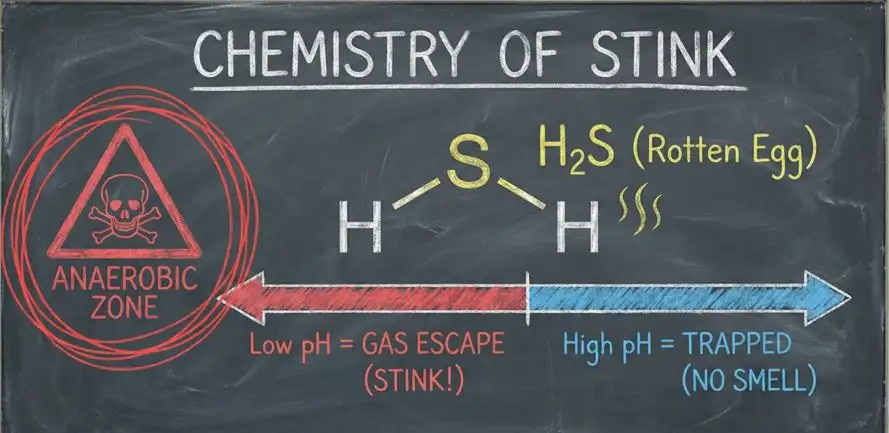 CHEMISTRY OF STINK
S
H₂S (Rotten Egg)
H
H
ANAEROBIC
ZONE
Low pH = GAS ESCAPE
(STINK!)
High pH = TRAPPED
(NO SMELL)